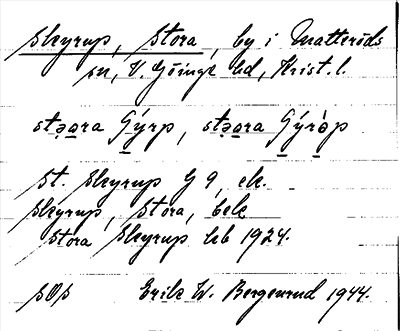 Skyrup, Stora, by i Matteröds
sn, V. Göinge hd, Krist. l.
stǝara Gýrp, stǝara Gýròp
St. Skyrup G 9, ek.
Skyrup, Stora, bek
Stora Skyrup kb 1924.
sOs Erik W. Bergenrud 1944.